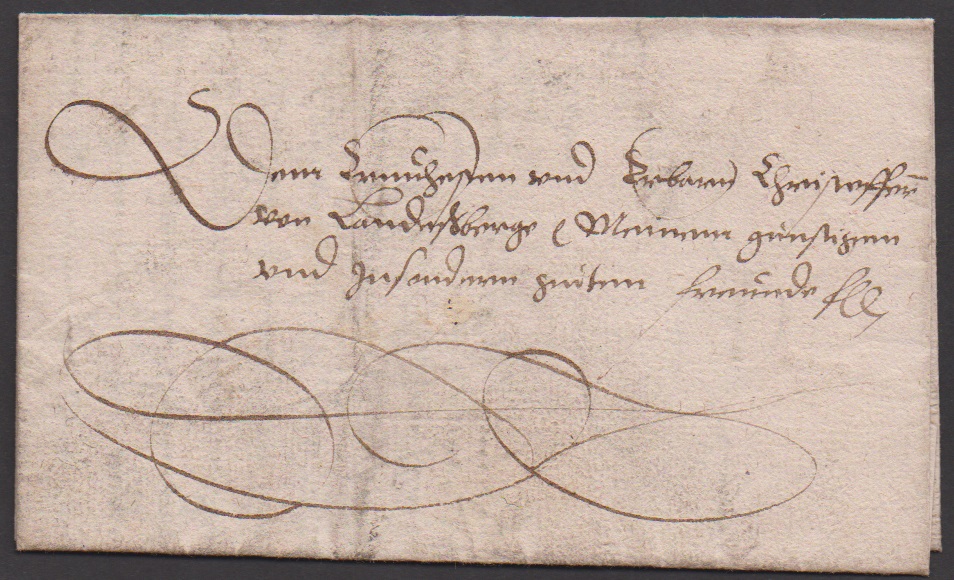 Dem Ernuhesten vnd Erbarn Christoffern
von Landeßberge Meinem günstigen
vnd Insondern guten freunde